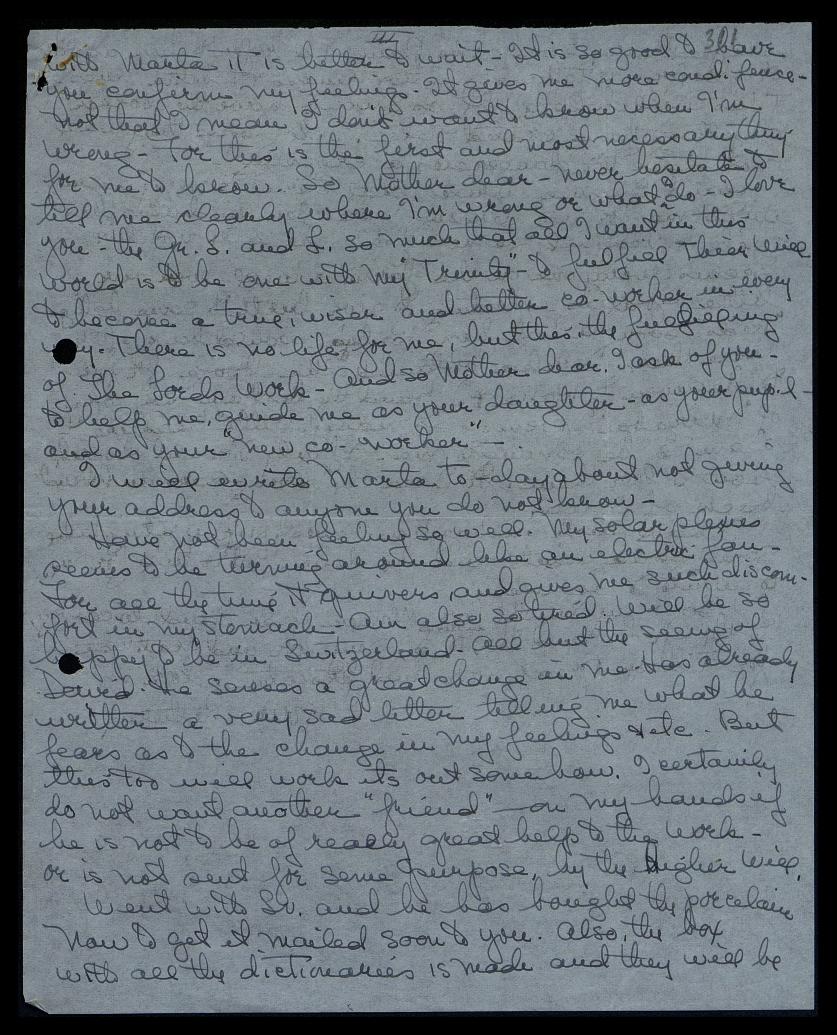 III 301
with Marta it is better to wait - It is so good to have
you confirm my feelings. It gives me more confidence -
not that I mean I don't want to know when I'm
wrong - For this is the first and most necessary thing
for me to know. So Mother dear - never hesitate to
tell me clearly where I'm wrong or what to do - I love
you - the Gr. L. and L. so much that all I want in this
world is to be one with my "Trinity" - to fulfuel Their Will
to become a true, wiser and better co-worker in every
way. There is no life for me, but this, the fulfilling
of The Lords Work - and so Mother dear, I ask of you -
to help me, guide me as your daughter - as your pupil -
and as your "new co-worker" - .
I will write Marta to-day about not giving
your address to anyone you do not know -
Have not been feeling so well. My solar plexus
seems to be turning around like an electric fan -
For all the time it quivers and gives me such discom-
fort in my stomach - Am also so tired. Will be so
happy to be in Switzerland - all but the seeing of
David. He senses a great change in me - Has already
written a very sad letter telling me what he
fears as to the change in my feelings & etc. But
this too will work its out somehow. I certainly
do not want another "friend" - on my hands if
he is not to be of really great help to the Work -
or is not sent for some purpose, by the Higher Will.
Went with Sv. and he has bought the porcelain
Now to get it mailed soon to you. Also, the box
with all the dictionaries is made and they will be